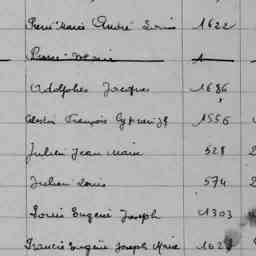 Pierre Marie André Louis 1622
Pierre Marie 1
Adolphe Jacques 1686
Célestin François Cyprien 1556
Julien Jean Marie 528
Julien Louis 574
Louis Eugène Joseph 1303
Francis Eugène Joseph Marie 102